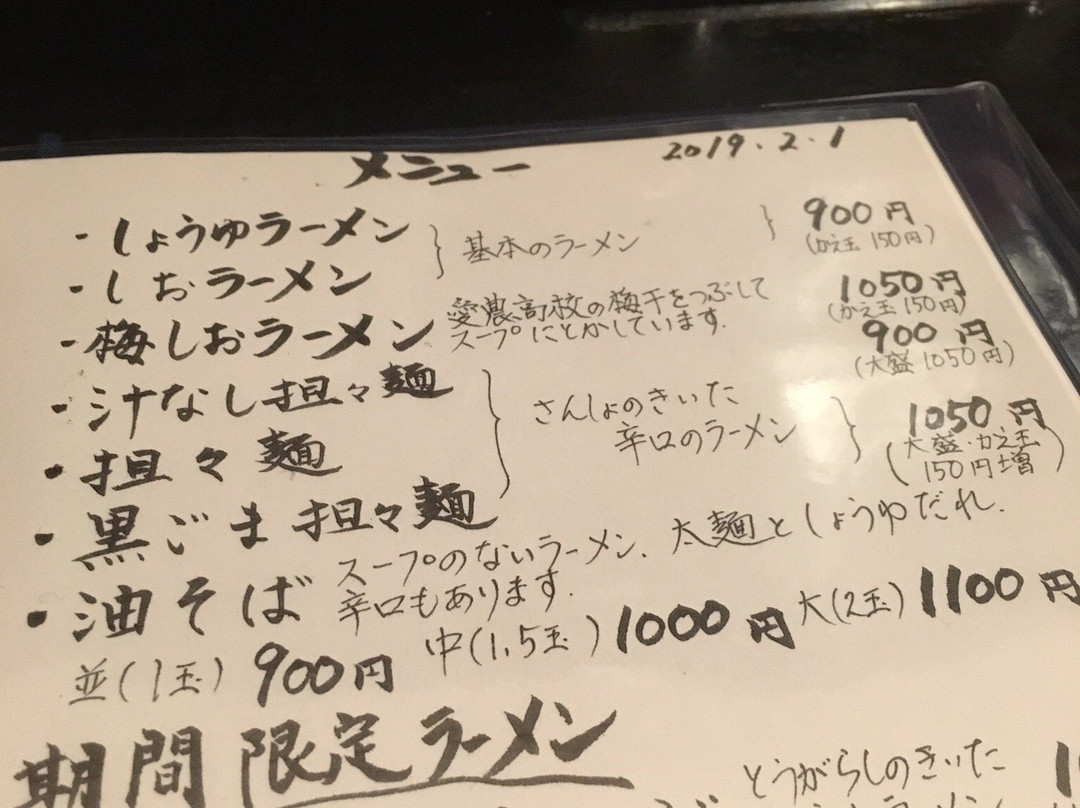 メニュー 2019.2.1
・しょうゆラーメン
・しおラーメン
基本のラーメン
900円
(かえ玉 150円)
・梅しおラーメン
愛農高校の梅干をつぶして
スープにとかしています.
1050円
(かえ玉 150円)
・汁なし担々麺
900円
(大盛 1050円)
・担々麺
・黒ごま担々麺
さんしょのきいた
辛口のラーメン
1050円
(大盛・かえ玉
150円増)
・油そば
スープのないラーメン、太麺としょうゆだれ.
辛口もあります.
並(1玉) 900円 中(1,5玉) 1000円 大(2玉) 1100円
期間限定ラーメン
とうがらしのきいた